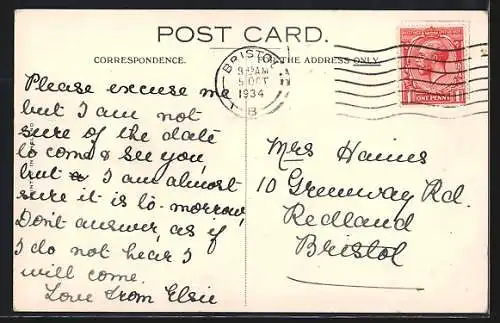 POST CARD.
CORRESPONDENCE.
FOR THE ADDRESS ONLY.
BRISTOL
5 OCT
1934
B
ONE PENNY
Please excuse me
but I am not
sure of the date
to come & see you,
but I am almost
sure it is to-morrow
Don't answer, as if
I do not hear I
will come.
Love from Elsie
Mrs Haines
10 Greenway Rd.
Redland
Bristol